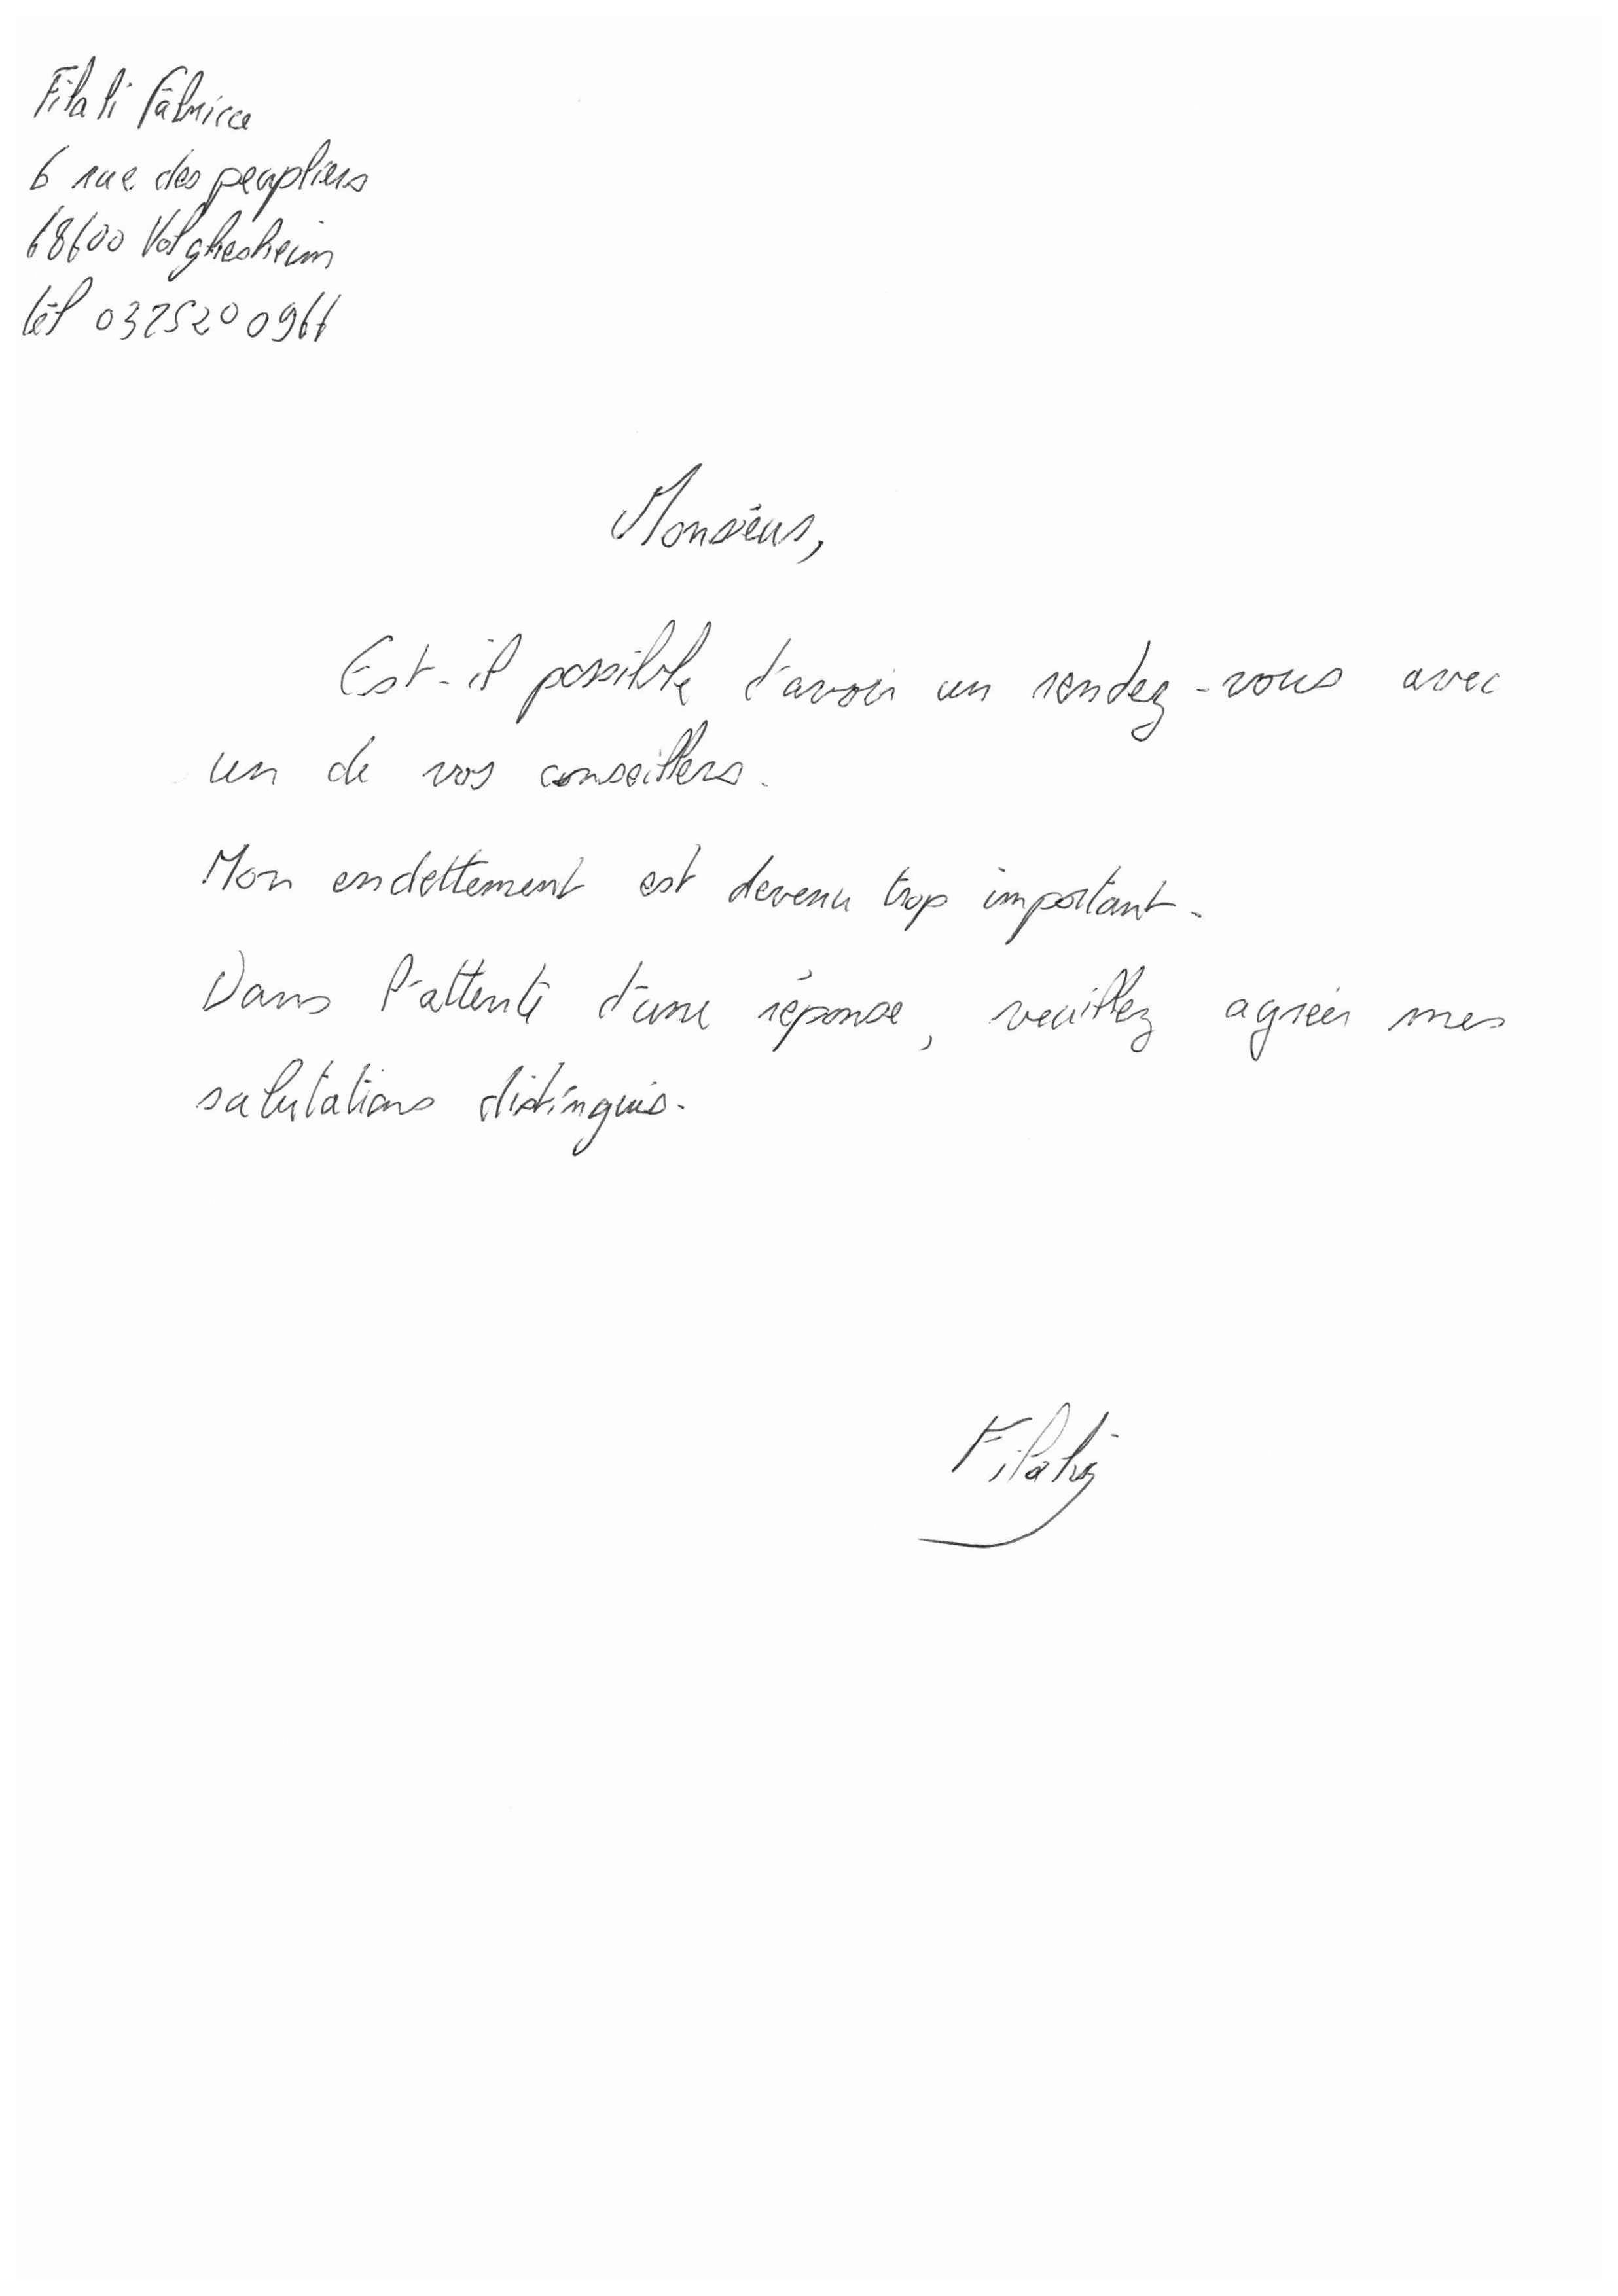 Filali Fabrice
6 rue des peupliers
68600 Volgelsheim
tél 0325200966
Monsieur,
Est-il possible d'avoir un rendez-vous avec
un de vos conseillers.
Mon endettement est devenu trop important.
Dans l'attente d'une réponse, veuillez agréer mes
salutations distingués.
Filali